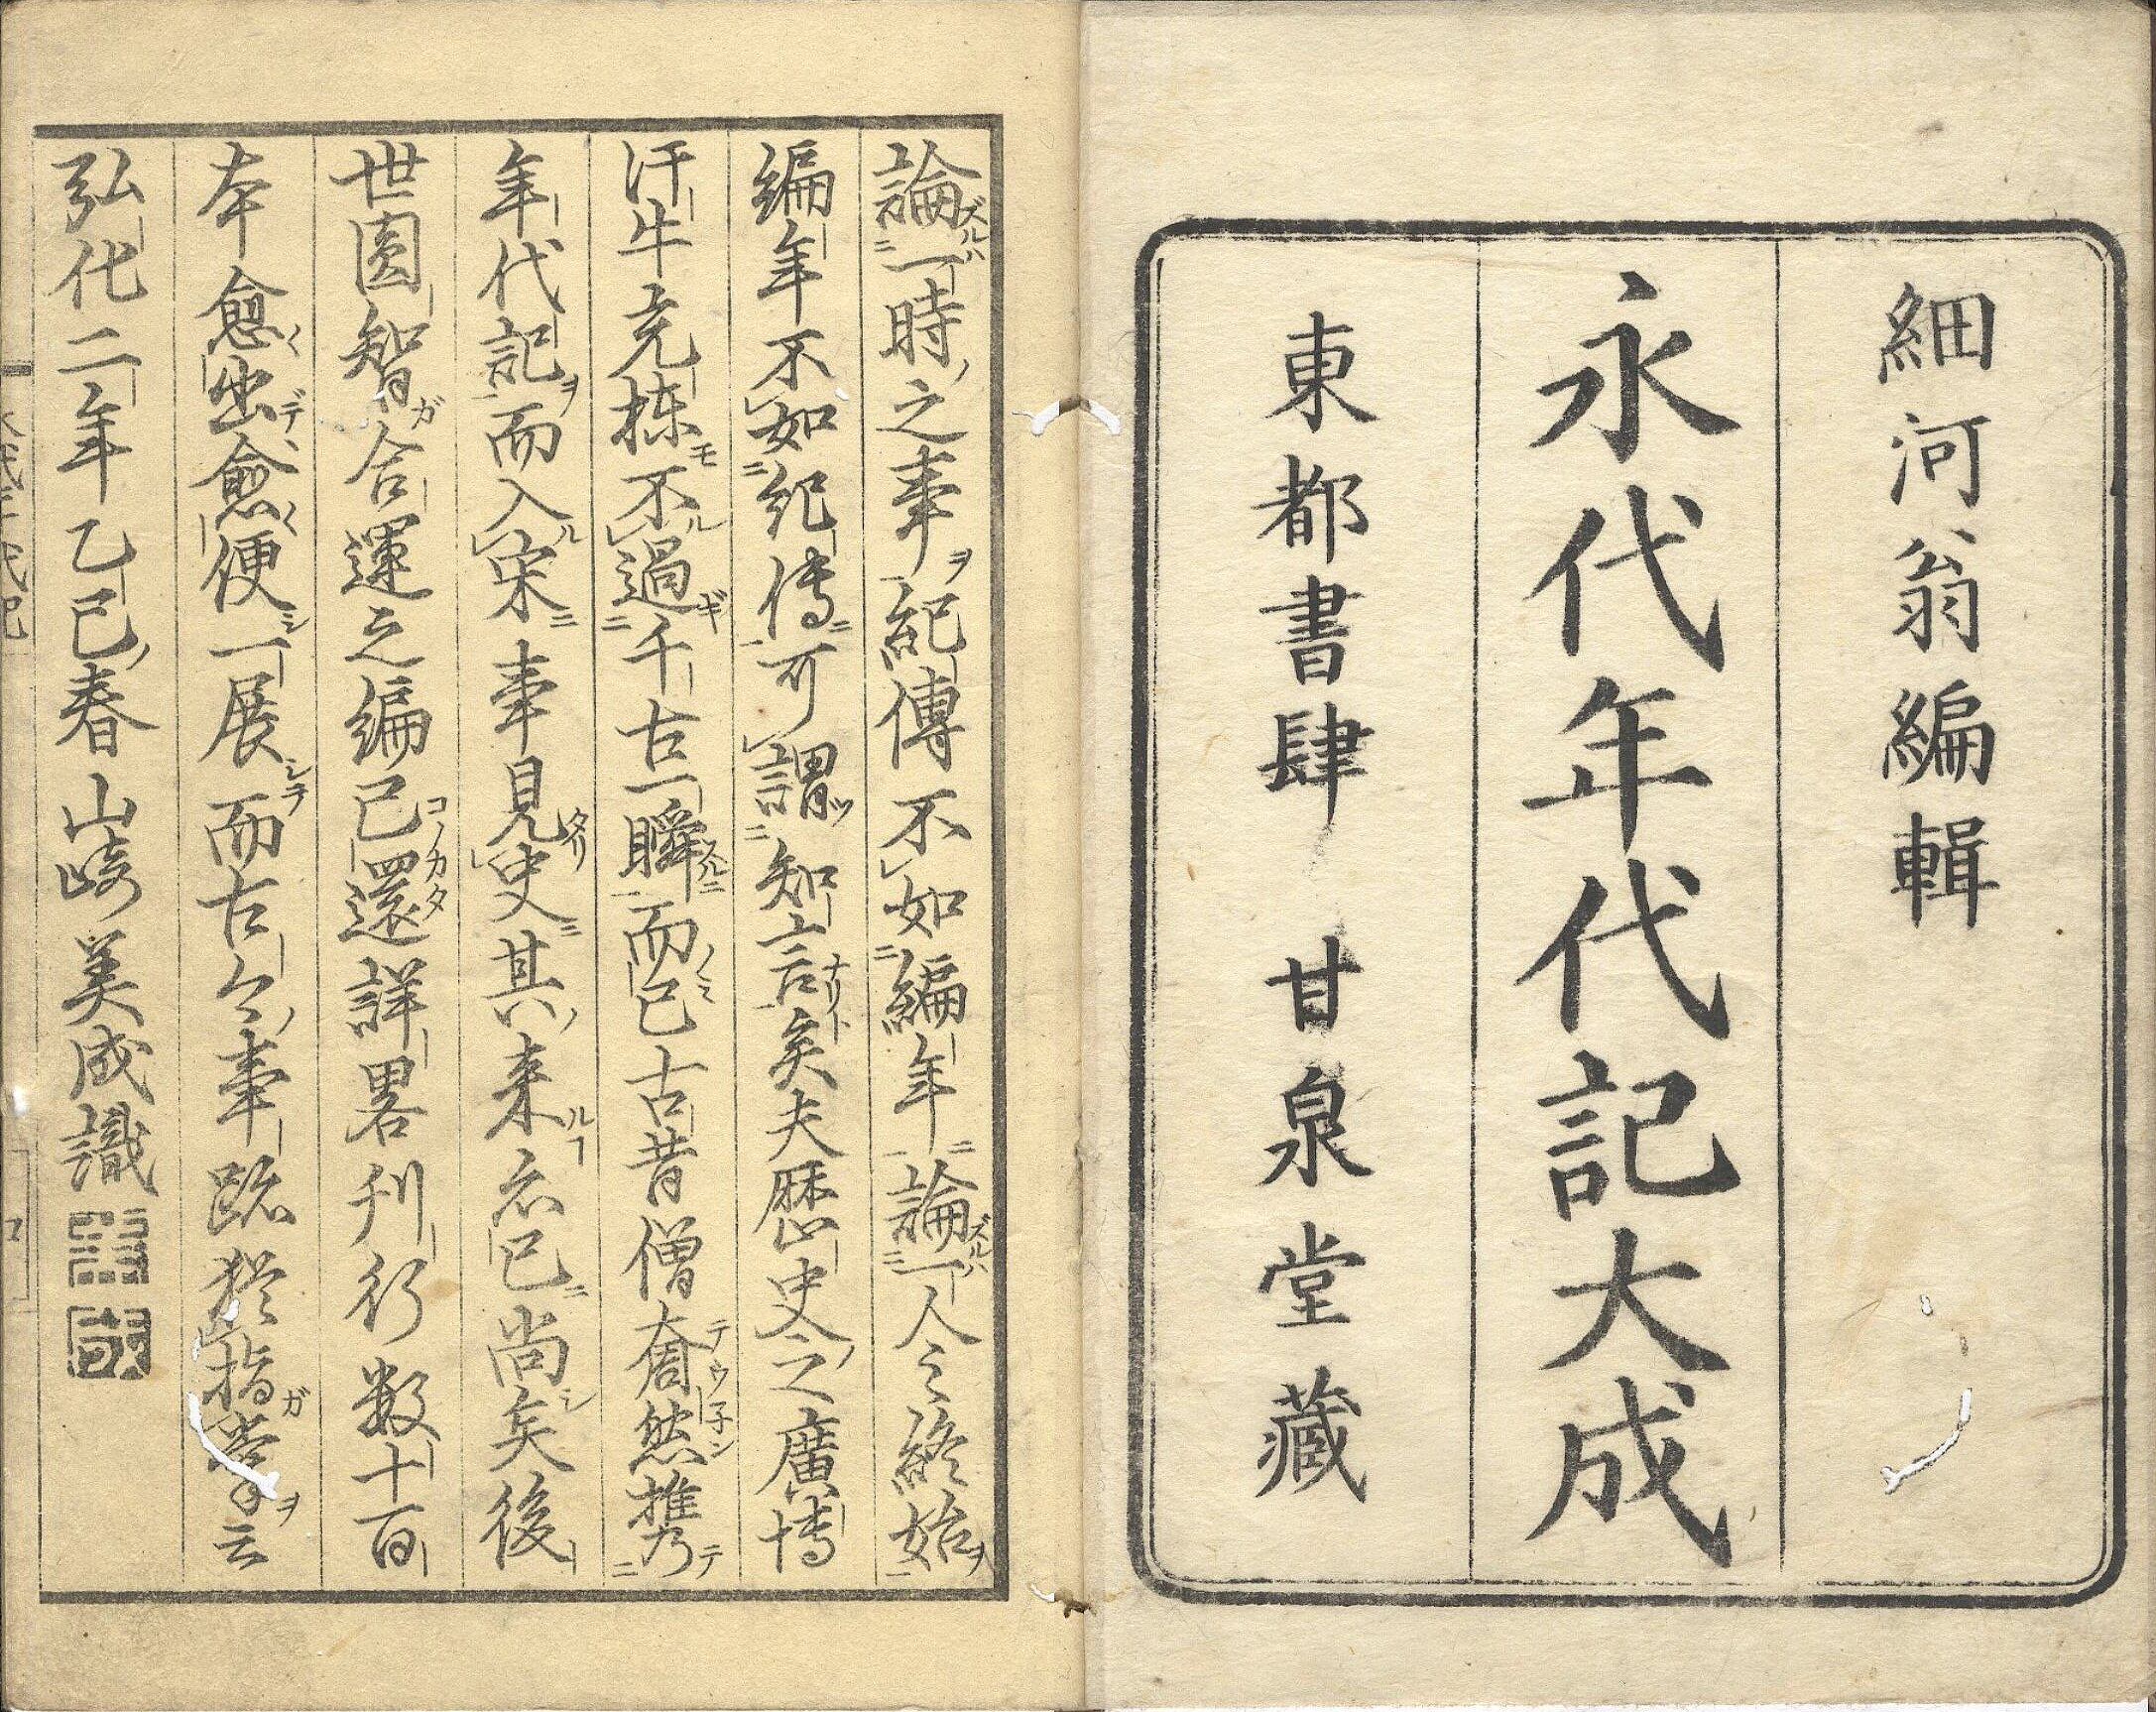 細河翁編輯
永代年代記大成
東都書肆 甘泉堂藏
論一時之事紀傳不如編年論一人之終始
編年不如紀傳可謂知言矣夫歴史之廣博
汗牛充棟不過千古一瞬而已古昔僧奝然携
年代記而入宋事見史其来尓已尚矣後
世圓智合運之編已還詳畧刊行数十百
本愈出愈便一展而古今事跡猶指掌云
弘化二年乙巳春山崎美成識